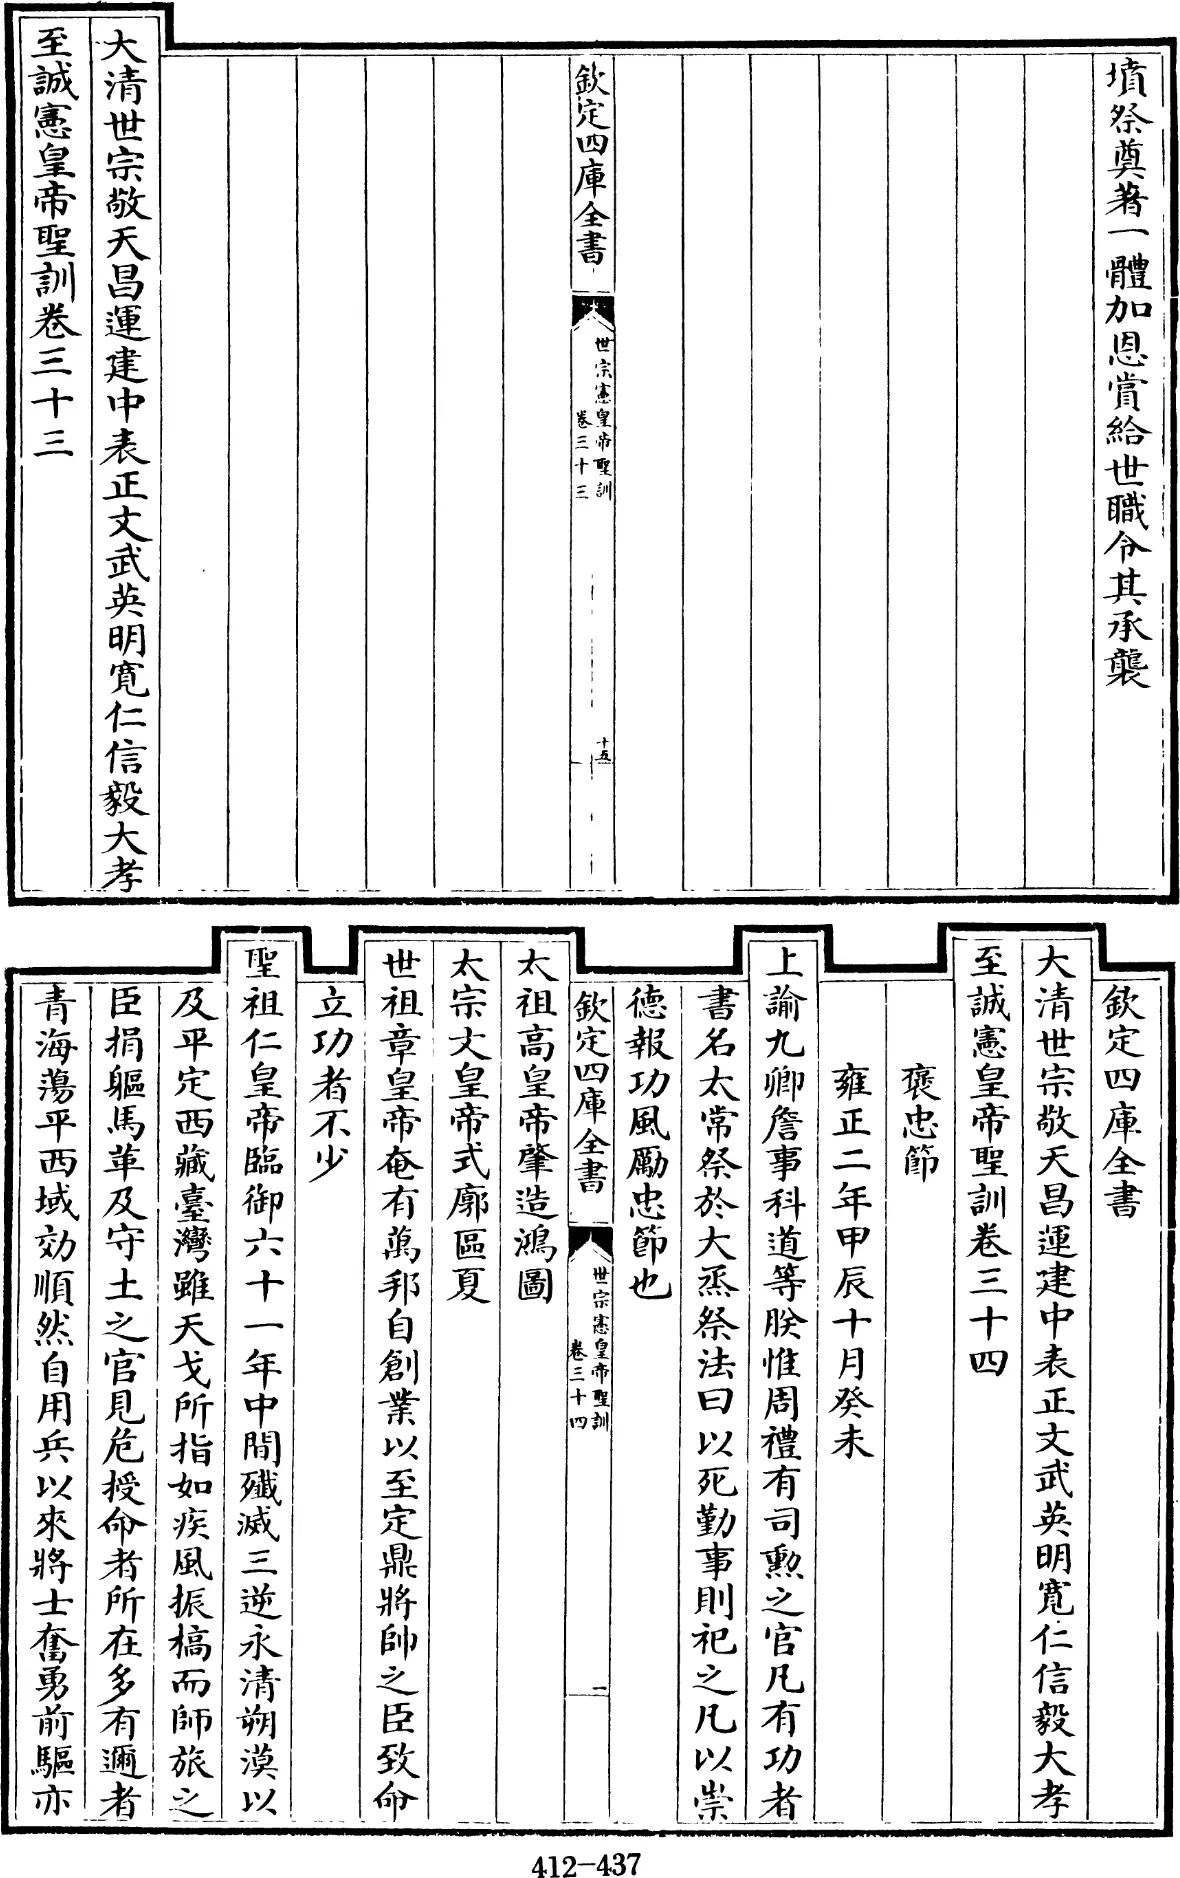 墳祭奠著一體加恩賞給世職令其承襲
欽定四庫全書
世宗憲皇帝聖訓
卷三十三
十五
大清世宗敬天昌運建中表正文武英明寬仁信毅大孝
至誠憲皇帝聖訓卷三十三
欽定四庫全書
大清世宗敬天昌運建中表正文武英明寬仁信毅大孝
至誠憲皇帝聖訓卷三十四
褒忠節
雍正二年甲辰十月癸未
上諭九卿詹事科道等朕惟周禮有司勲之官凡有功者
書名太常祭於大烝祭法曰以死勤事則祀之凡以崇
德報功風勵忠節也
欽定四庫全書
世宗憲皇帝聖訓
卷三十四
一
太祖高皇帝肇造鴻圖
太宗文皇帝式廓區夏
世祖章皇帝奄有萬邦自創業以至定鼎將帥之臣致命
立功者不少
聖祖仁皇帝臨御六十一年中間殲滅三逆永清朔漠以
及平定西藏臺灣雖天戈所指如疾風振槁而師旅之
臣捐軀馬革及守土之官見危授命者所在多有邇者
青海蕩平西域効順然自用兵以來將士奮勇前驅亦
412-437